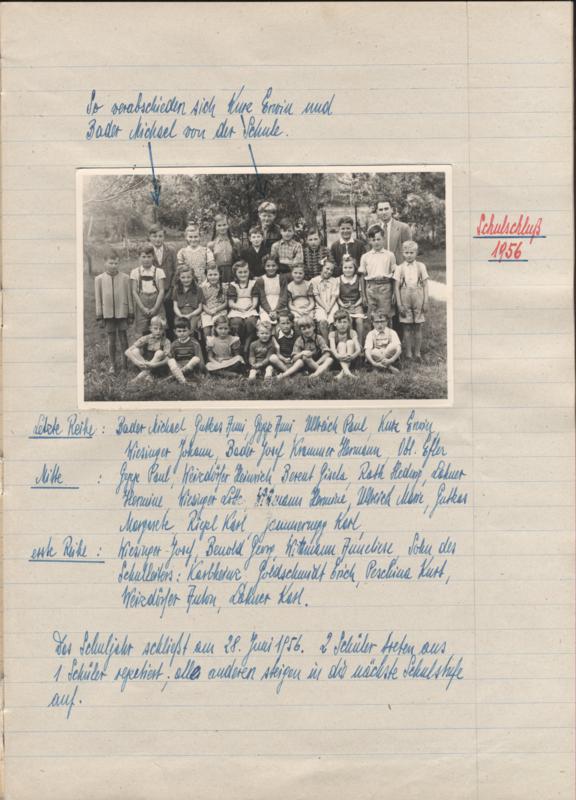 So verabschieden sich Kurz Erwin und
Bader Michael von der Schule.
Schulschluß
1956
Letzte Reihe: Bader Michael, Gutkas Anni, Gyge Anni, Ullrich Paul, Kurz Erwin,
Wiesinger Johann, Bader Josef, Krammer Hermann, Obl. Efler
Mitte: Gyge Paul, Weizdörfer Heinrich, Berent Gisela, Rath Hedwig, Lahner
Hermine, Wiesinger, Hermine, Ullrich Marie, Gutkas
Margarete, Riegel Karl, Jammernegg Karl.
erste Reihe: Wiesinger Josef, Georg, Wittmann Anneliese, Sohn des
Schulleiters: Karlheinz, Goldschmidt Erich, Peschina Kurt,
Weizdörfer Anton, Lahner Karl.
Das Schuljahr schließt am 28. Juni 1956. 2 Schüler treten aus
1 Schüler repetiert; alle anderen steigen in die nächste Schulstufe
auf.